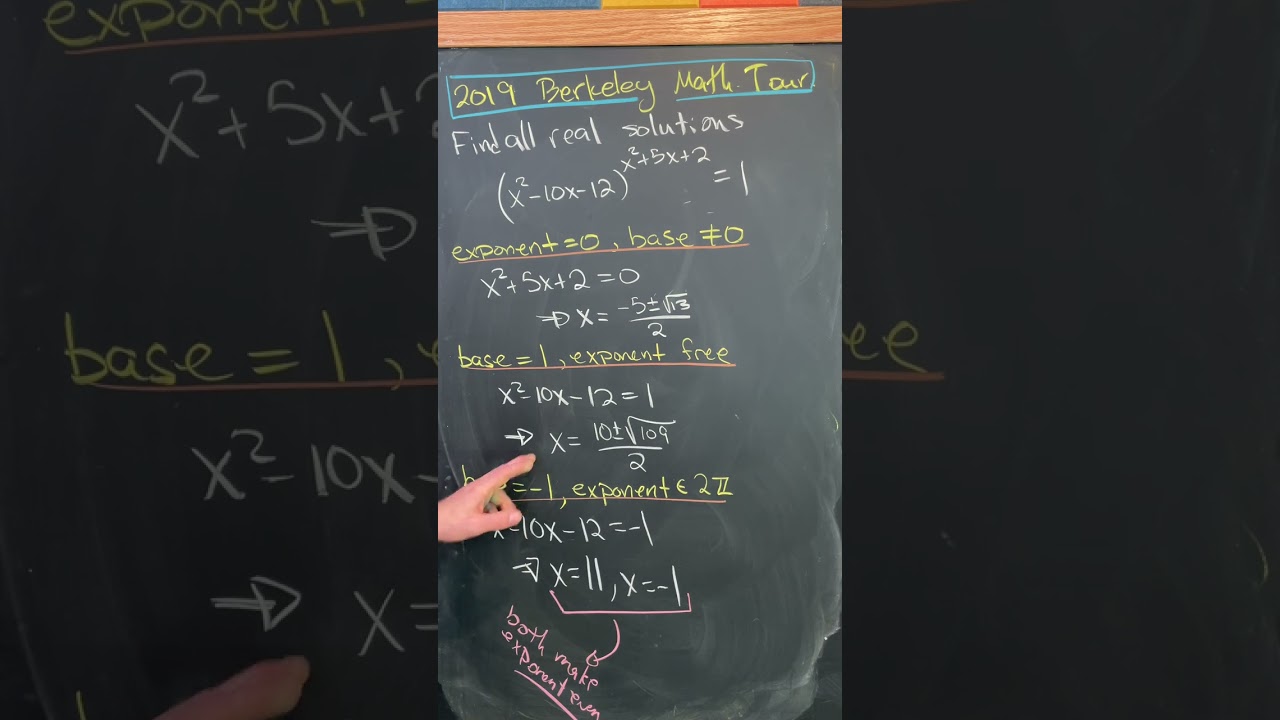 2019 Berkeley Math Tour
Find all real solutions
(x²-10x-12)^(x²+5x+2) = 1
exponent=0, base ≠0
x²+5x+2=0
⇒ x= (-5±√13)/2
base=1, exponent free
x²-10x-12=1
⇒ x= (10±√109)/2
=-1, exponent ∈ 2ℤ
-10x-12=-1
⇒ x=11, x=-1
both make
exponent even
exponent
x²+5x+
⇒
base=1,
x²-10x-
⇒ x=